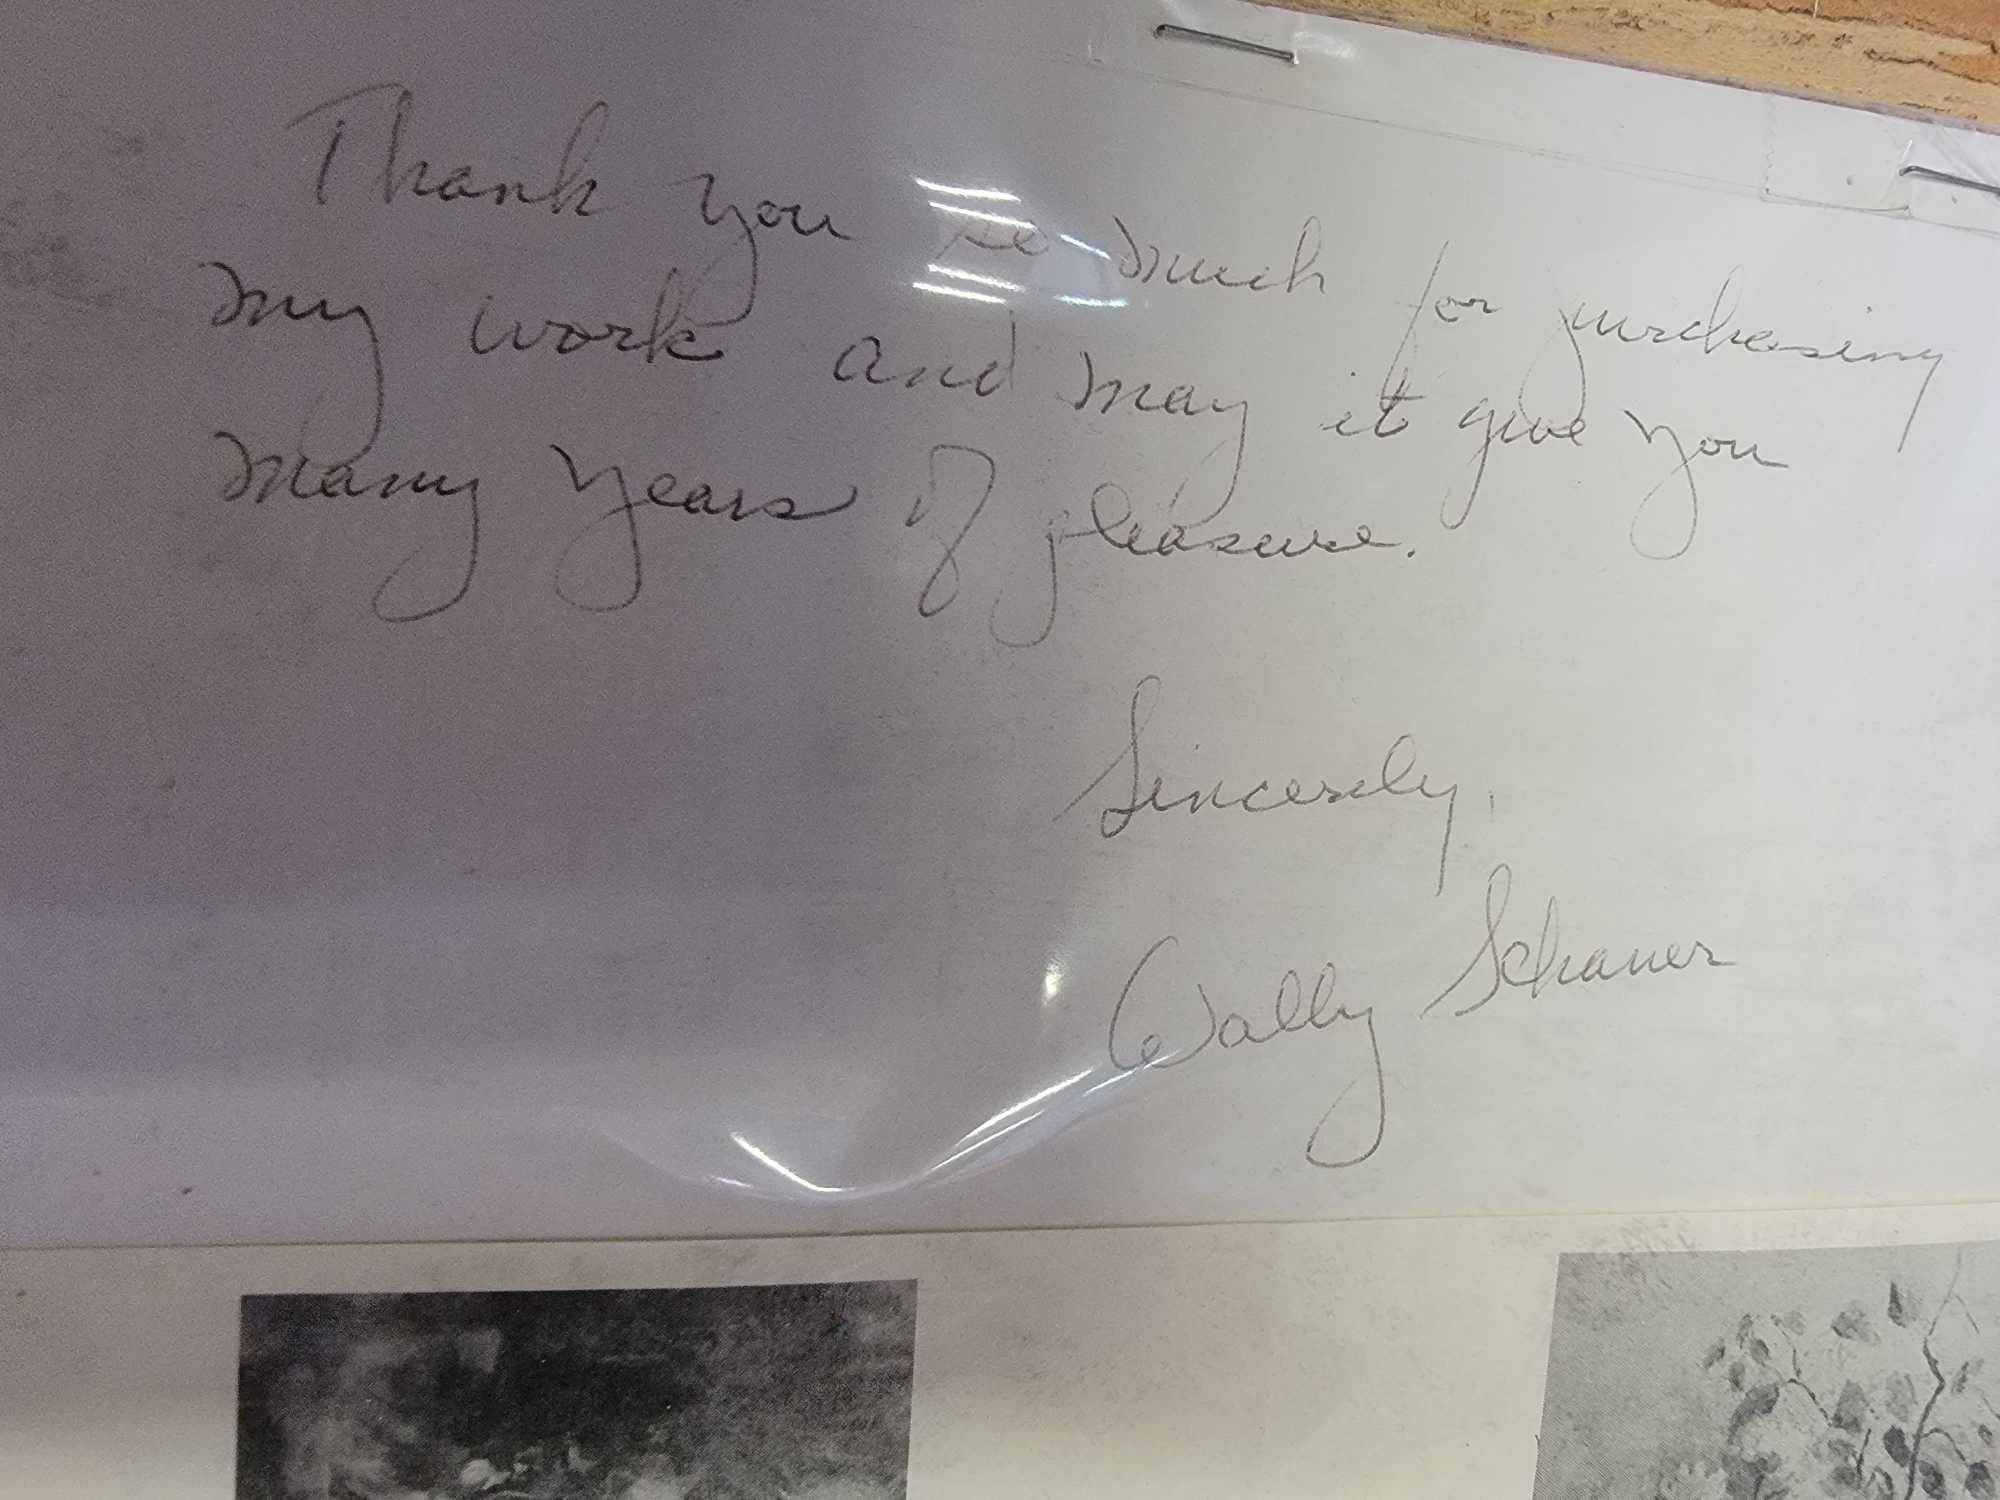 Thank you so much for purchasing
my work and may it give you
many years of pleasure.
Sincerely,
Wally Schauer